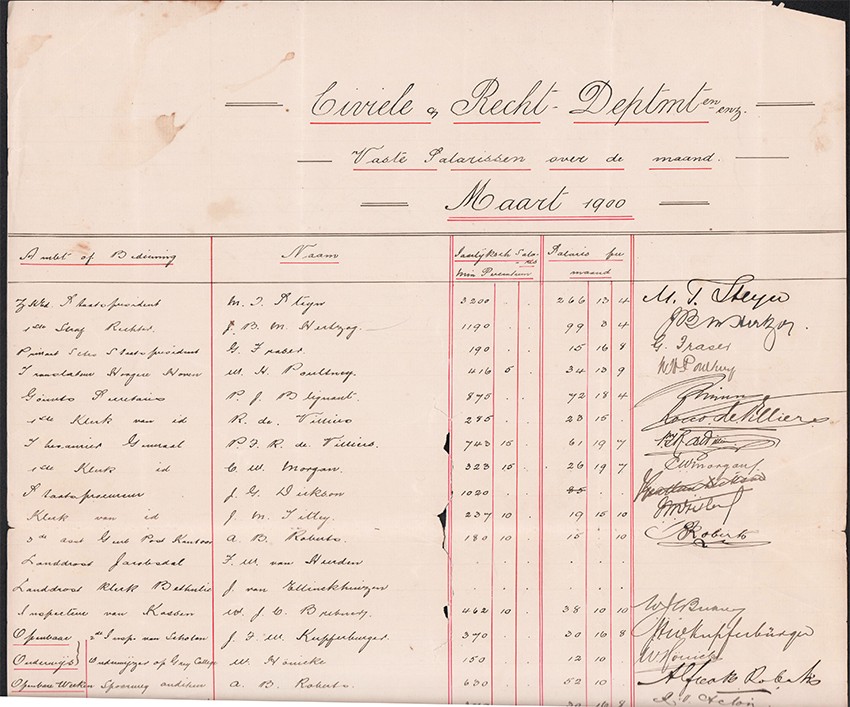 Civiele & Recht- Deptmten enz.
Vaste Salarissen over de maand.
Maart 1900
Ambt of Bediening Naam Jaarlijksch Sala- Salaris per
maand
Staatspresident M. T. Steyn 3200 . . 266 13 4 M. T. Steyn
1ste Straf Rechter. J. B. M. Hertzog. 1190 . . 99 3 4 JBM Hertzog.
Staatspresident G. Fraser 190 . . 15 16 8 G. Fraser
Translateur Hoogere Hoven W. H. Poultney. 416 5 . 34 13 9 WH Poultney
Gouvts Secretaris P. J. Blignaut. 875 . . 72 18 4
1ste Klerk van id R. de Villiers 285 . . 23 15 . de Villiers
Thesaurier Generaal P. F. R. de Villiers. 743 15 . 61 19 7
1ste Klerk id C. W. Morgan. 323 15 . 26 19 7 CWmorgan
Staatsprocureur J. G. Dickson 1020 . . 85 . .
Klerk van id J. M. Tilley. 237 10 . 19 15 10
3de asst Genl Post Kantoor A. B. Roberts. 180 10 . 15 . 10 Roberts
Landdrost Jacobsdal F. W. van Heerden . . .
Landdrost Klerk Bethulie J. van . . .
Inspectie van Kassen W. J. C. Brebner. 462 10 . 38 10 10
Openbaar 2de Insp. van Scholen J. F. W. Kupferburger. 370 . . 30 16 8 Kupferbürger
Onderwijs Onderwijzer op Grey College W. Hönicke 150 . . 12 10 .
Openbare Werken Spoorweg A. B. Roberts. 630 . . 52 10 . Alfred Roberts
30 16 8